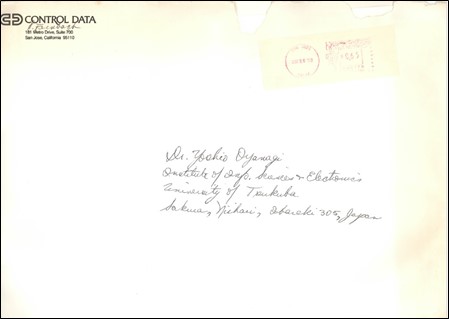 CONTROL DATA
181 Metro Drive, Suite 700
San Jose, California 95110
Dr. Yoshio Oyanagi
Institute of Info. Sciences & Electronics
University of Tsukuba
Sakura, Niihari, Ibaraki 305, Japan